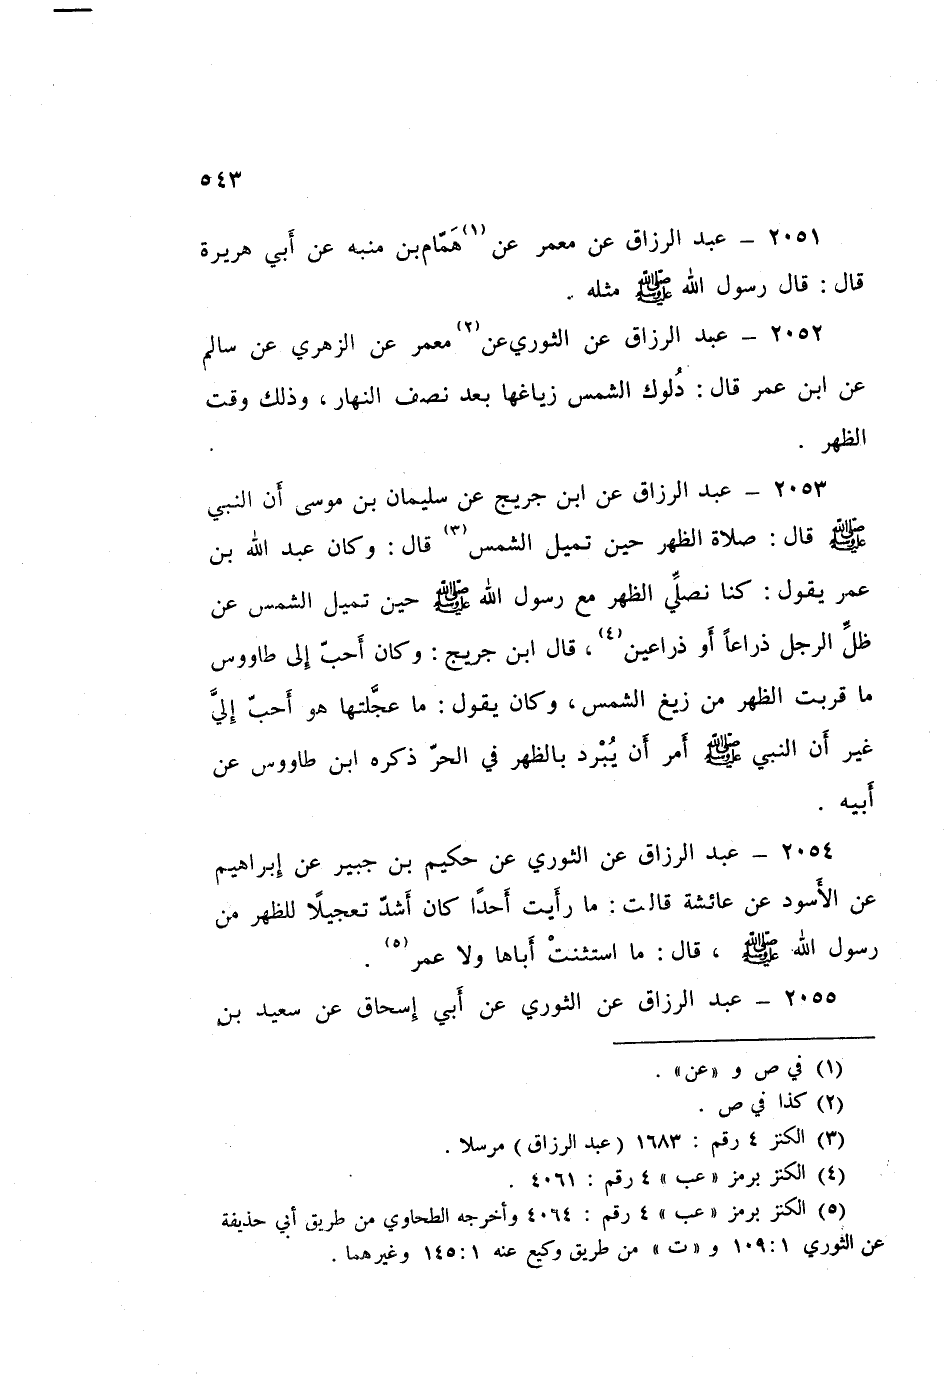 ٥٤٣
٢٠٥١ – عبد الرزاق عن معمر عن (١) هَمّام بن منبه عن أَبي هريرة
قال : قال رسول الله ﷺ مثله .
٢٠٥٢ – عبد الرزاق عن الثوري عن (٢) معمر عن الزهري عن سالم
عن ابن عمر قال : دُلوك الشمس زياغها بعد نصف النهار ، وذلك وقت
الظهر .
٢٠٥٣ – عبد الرزاق عن ابن جريج عن سليمان بن موسى أن النبي
ﷺ قال : صلاة الظهر حين تميل الشمس (٣) قال : وكان عبد الله بن
عمر يقول : كنا نصلِّي الظهر مع رسول الله ﷺ حين تميل الشمس عن
ظلِّ الرجل ذراعاً أَو ذراعين (٤) ، قال ابن جريج : وكان أَحبّ إلى طاووس
ما قربت الظهر من زيغ الشمس ، وكان يقول : ما عجَّلتها هو أَحبّ إِليَّ
غير أَن النبي ﷺ أَمر أَن يُبْرد بالظهر في الحرّ ذكره ابن طاووس عن
أَبيه .
٢٠٥٤ – عبد الرزاق عن الثوري عن حكيم بن جبير عن إِبراهيم
عن الأَسود عن عائشة قالت : ما رأَيت أَحدًا كان أَشدّ تعجيلًا للظهر من
رسول الله ﷺ ، قال : ما استثنتْ أَباها ولا عمر (٥) .
٢٠٥٥ – عبد الرزاق عن الثوري عن أَبي إِسحاق عن سعيد بن
(١) في ص و «عن» .
(٢) كذا في ص .
(٣) الكنز ٤ رقم : ١٦٨٣ (عبد الرزاق) مرسلا .
(٤) الكنز برمز «عب» ٤ رقم : ٤٠٦١ .
(٥) الكنز برمز «عب» ٤ رقم : ٤٠٦٤ وأخرجه الطحاوي من طريق أبي حذيفة
عن الثوري ١ : ١٠٩ و «ت» من طريق وكيع عنه ١ : ١٤٥ وغيرهما .